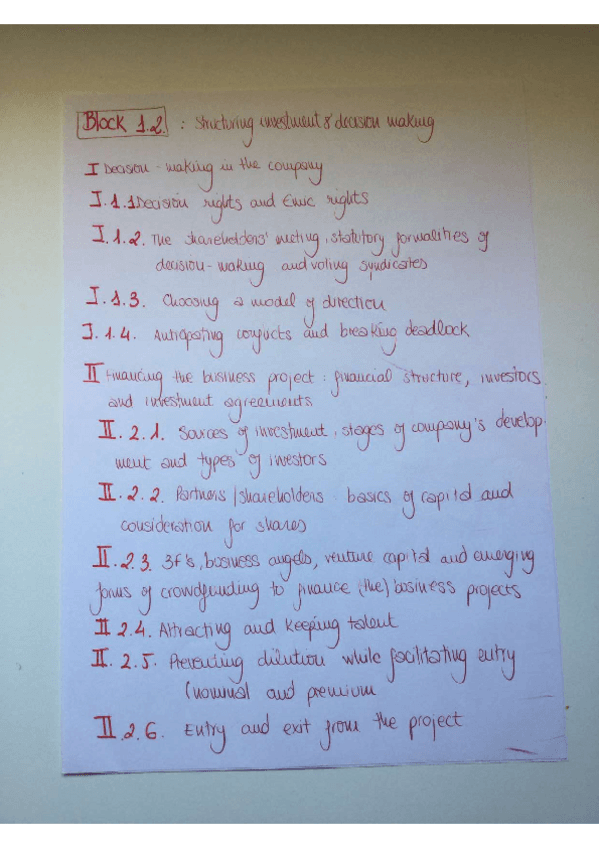 Block 1.2. : Structuring investment & decision making
I Decision - making in the company
I.1.1 Decision rights and Civic rights
I.1.2. The shareholders' meeting, statutory formalities of
decision - making and voting syndicates
I.1.3. Choosing a model of direction
I.1.4. Anticipating conflicts and breaking deadlock
II Financing the business project : financial structure, investors
and investment agreements
II.2.1. Sources of investment, stages of company's develop-
ment and types of investors
II.2.2. Partners / shareholders basics of capital and
consideration for shares
II.2.3. 3F's, business angels, venture capital and emerging
forms of crowdfunding to finance (the) business projects
II 2.4. Attracting and keeping talent
II.2.5. Preventing dilution while facilitating entry
(nominal and premium
II.2.6. Entry and exit from the project